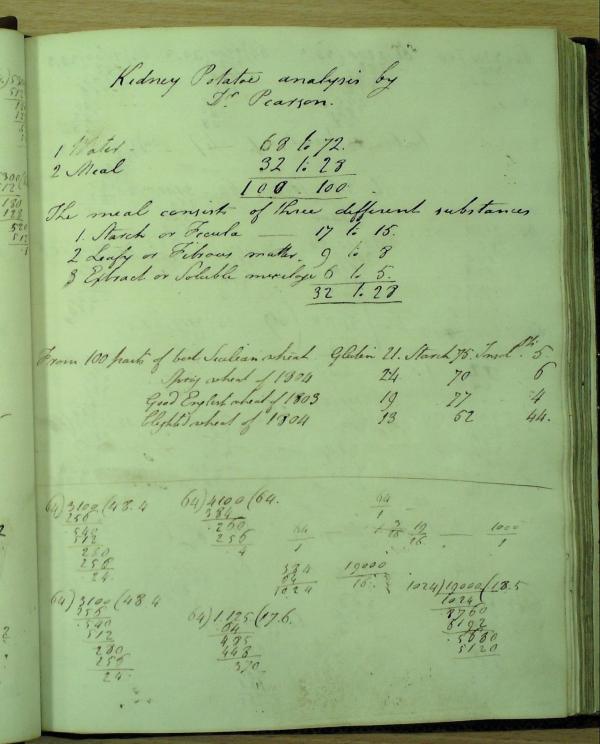 Kidney Potatoe analysis by
Dr Pearson.
1 Water - 68 to 72.
2 Meal 32 to 28
100 . 100
The meal consists of three different substances
1. Starch or Fecula — 17 to 15.
2 Leafy or Fibrous matter. 9 to 8
3 Extract or Soluble mucilage 6 to 5.
32 to 28
From 100 parts of best Sicilean wheat Glutin 21. Starch 75. Insol. 5.
Spring wheat of 1804 24 70 6
Good English wheat of 1803 19 77 4
Blighted wheat of 1804 13 52 44.
64)3100(48.4
256
540
512
280
256
24
64)4100(64.
384
260
256
4
64
1
19
16
1000
1
64
1
384
64
1024
19000
16
1024)19000(18.5
1024
8760
8192
5680
5120
64)3100(48.4
256
540
512
280
256
24
64)1.125(17.6.
64
485
448
370